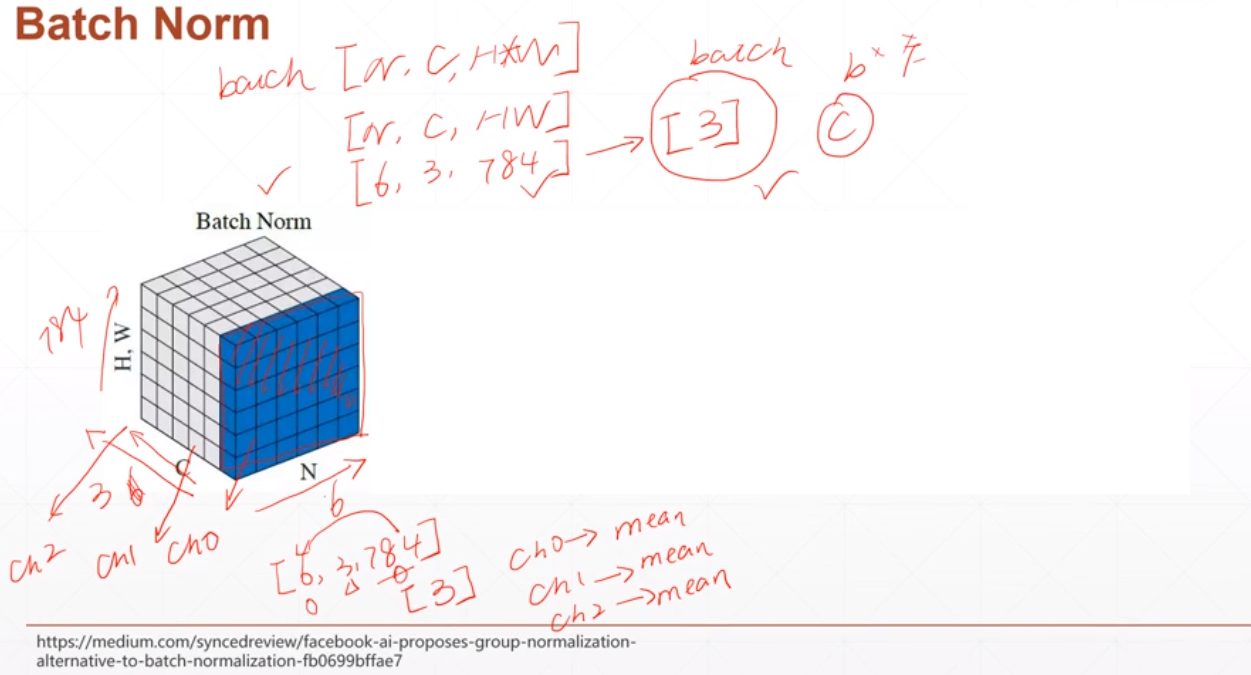 Batch Norm
batch [N, C, H*W]
[N, C, HW]
[6, 3, 784] → [3]
batch
C
Batch Norm
784
H, W
C
N
3
6
ch2 ch1 ch0
[6, 3, 784]
0
[3]
ch0→ mean
ch1→mean
ch2→mean
https://medium.com/syncedreview/facebook-ai-proposes-group-normalization-
alternative-to-batch-normalization-fb0699bffae7